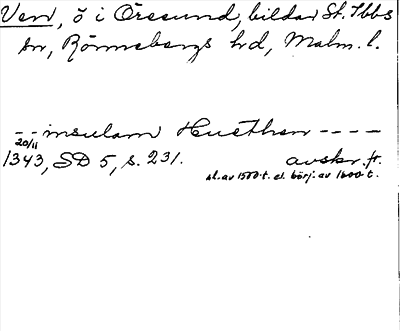 Ven, ö i Öresund, bildar St. Ibbs
sn, Rönnebergs hd, Malm. l.
-- insulam Huethen ----
20/11
1343, SD 5, s. 231. avskr. fr.
sl. av 1500-t. el. börj. av 1600-t.